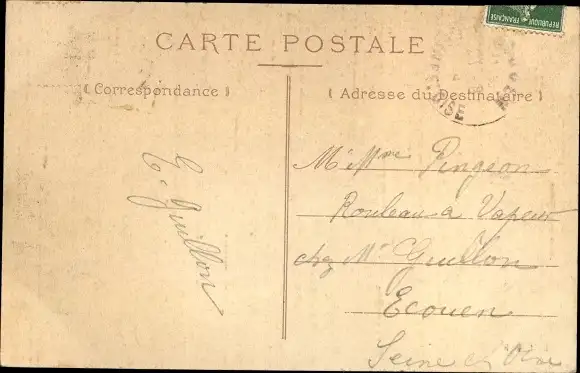 REPUBLIQUE FRANÇAISE
CARTE POSTALE
( Correspondance )
( Adresse du Destinataire )
E. Guillon
M et Mme Pingeon
Rouleau à Vapeur
chez Mr Guillon
Ecouen
Seine et Oise